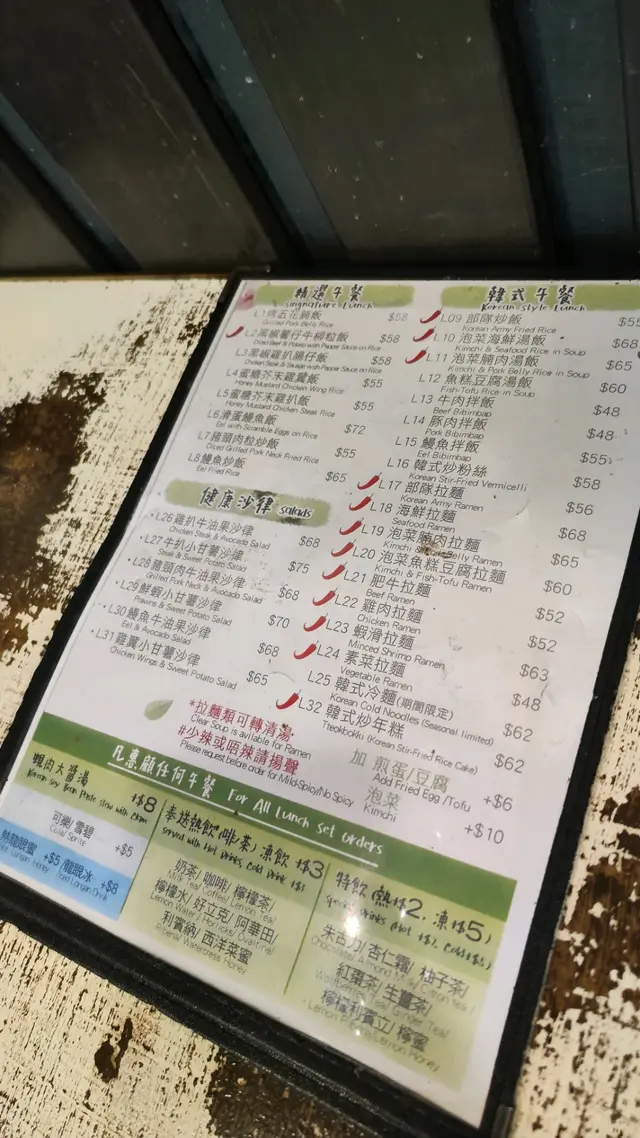 精選午餐
Singnature Lunch
$58
Grilled Pork Belly Rice
L2黑椒薯仔牛柳粒飯
$58
Diced Beef & Potato with Pepper Sauce on Rice
L3黑椒雞扒腸仔飯
$58
Chicken Steak & Sausage with Pepper Sauce on Rice
L4蜜糖芥末雞翼飯
$55
Honey Mustard Chicken Wing Rice
L5蜜糖芥末雞扒飯
$55
Honey Mustard Chicken Steak Rice
L6滑蛋鰻魚飯
$72
Eel with Scramble Eggs on Rice
L7豬頸肉粒炒飯
$55
Diced Grilled Pork Neck Fried Rice
L8鰻魚炒飯
$65
Eel Fried Rice
健康沙律 salads
L26雞扒牛油果沙律
$68
Chicken Steak & Avocado Salad
L27牛扒小甘薯沙律
$75
Steak & Sweet Potato Salad
L28豬頸肉牛油果沙律
$68
Grilled Pork Neck & Avocado Salad
L29鮮蝦小甘薯沙律
$70
Prawns & Sweet Potato Salad
L30鰻魚牛油果沙律
$68
Eel & Avocado Salad
L31雞翼小甘薯沙律
$65
Chicken Wings & Sweet Potato Salad
*拉麵類可轉清湯
Clear Soup is avilable for Ramen
#少辣或唔辣請揚聲
Please request before order for Mild-Spicy/No Spicy
韓式午餐
Korean style Lunch
L09 部隊炒飯
$55
Korean Army Fried Rice
L10 泡菜海鮮湯飯
$68
Kimchi & Seafood Rice in Soup
L11 泡菜腩肉湯飯
$65
Kimchi & Pork Belly Rice in Soup
L12 魚糕豆腐湯飯
$60
Fish-Tofu Rice in Soup
L13 牛肉拌飯
$48
Beef Bibimbap
L14 豚肉拌飯
$48
Pork Bibimbap
L15 鰻魚拌飯
$55
Eel Bibimbap
L16 韓式炒粉絲
$58
Korean Stir-Fried Vermicelli
L17 部隊拉麵
$56
Korean Army Ramen
L18 海鮮拉麵
$68
Seafood Ramen
L19 泡菜腩肉拉麵
$65
Kimchi & Pork Belly Ramen
L20 泡菜魚糕豆腐拉麵
$60
Kimchi & Fish-Tofu Ramen
L21 肥牛拉麵
$52
Beef Ramen
L22 雞肉拉麵
$52
Chicken Ramen
L23 蝦滑拉麵
$63
Minced Shrimp Ramen
L24 素菜拉麵
$48
Vegetable Ramen
L25 韓式冷麵(期間限定)
$62
Korean Cold Noodles (Seasonal limited)
L32 韓式炒年糕
$62
Tteokbokki (Korean Stir-Fried Rice Cake)
加 煎蛋/豆腐
+$6
Add Fried Egg /Tofu
泡菜
+$10
Kimchi
凡惠顧任何午餐 For All Lunch Set Orders
蜆肉大醬湯
+$8
Korean Soy Bean Paste Stew with Clam
可樂/雪碧
+$5
Cola/ Sprite
+$5
龍眼冰
+$8
Iced Longan Drink
奉送熱飲(啡/茶) 凍飲+$3
served with Hot Drinks, Cold Drink +$3
奶茶/咖啡/檸檬茶/
Milk Tea/ Coffee/ Lemon Tea/
檸檬水/好立克/阿華田/
Lemon Water/ Horlicks/ Ovaltine/
利賓納/西洋菜蜜
Ribena/ Watercress Honey
特飲(熱+$2, 凍+$5)
朱古力/杏仁霜/柚子茶/
紅棗茶/生薑茶/
檸檬利賓立/檸蜜